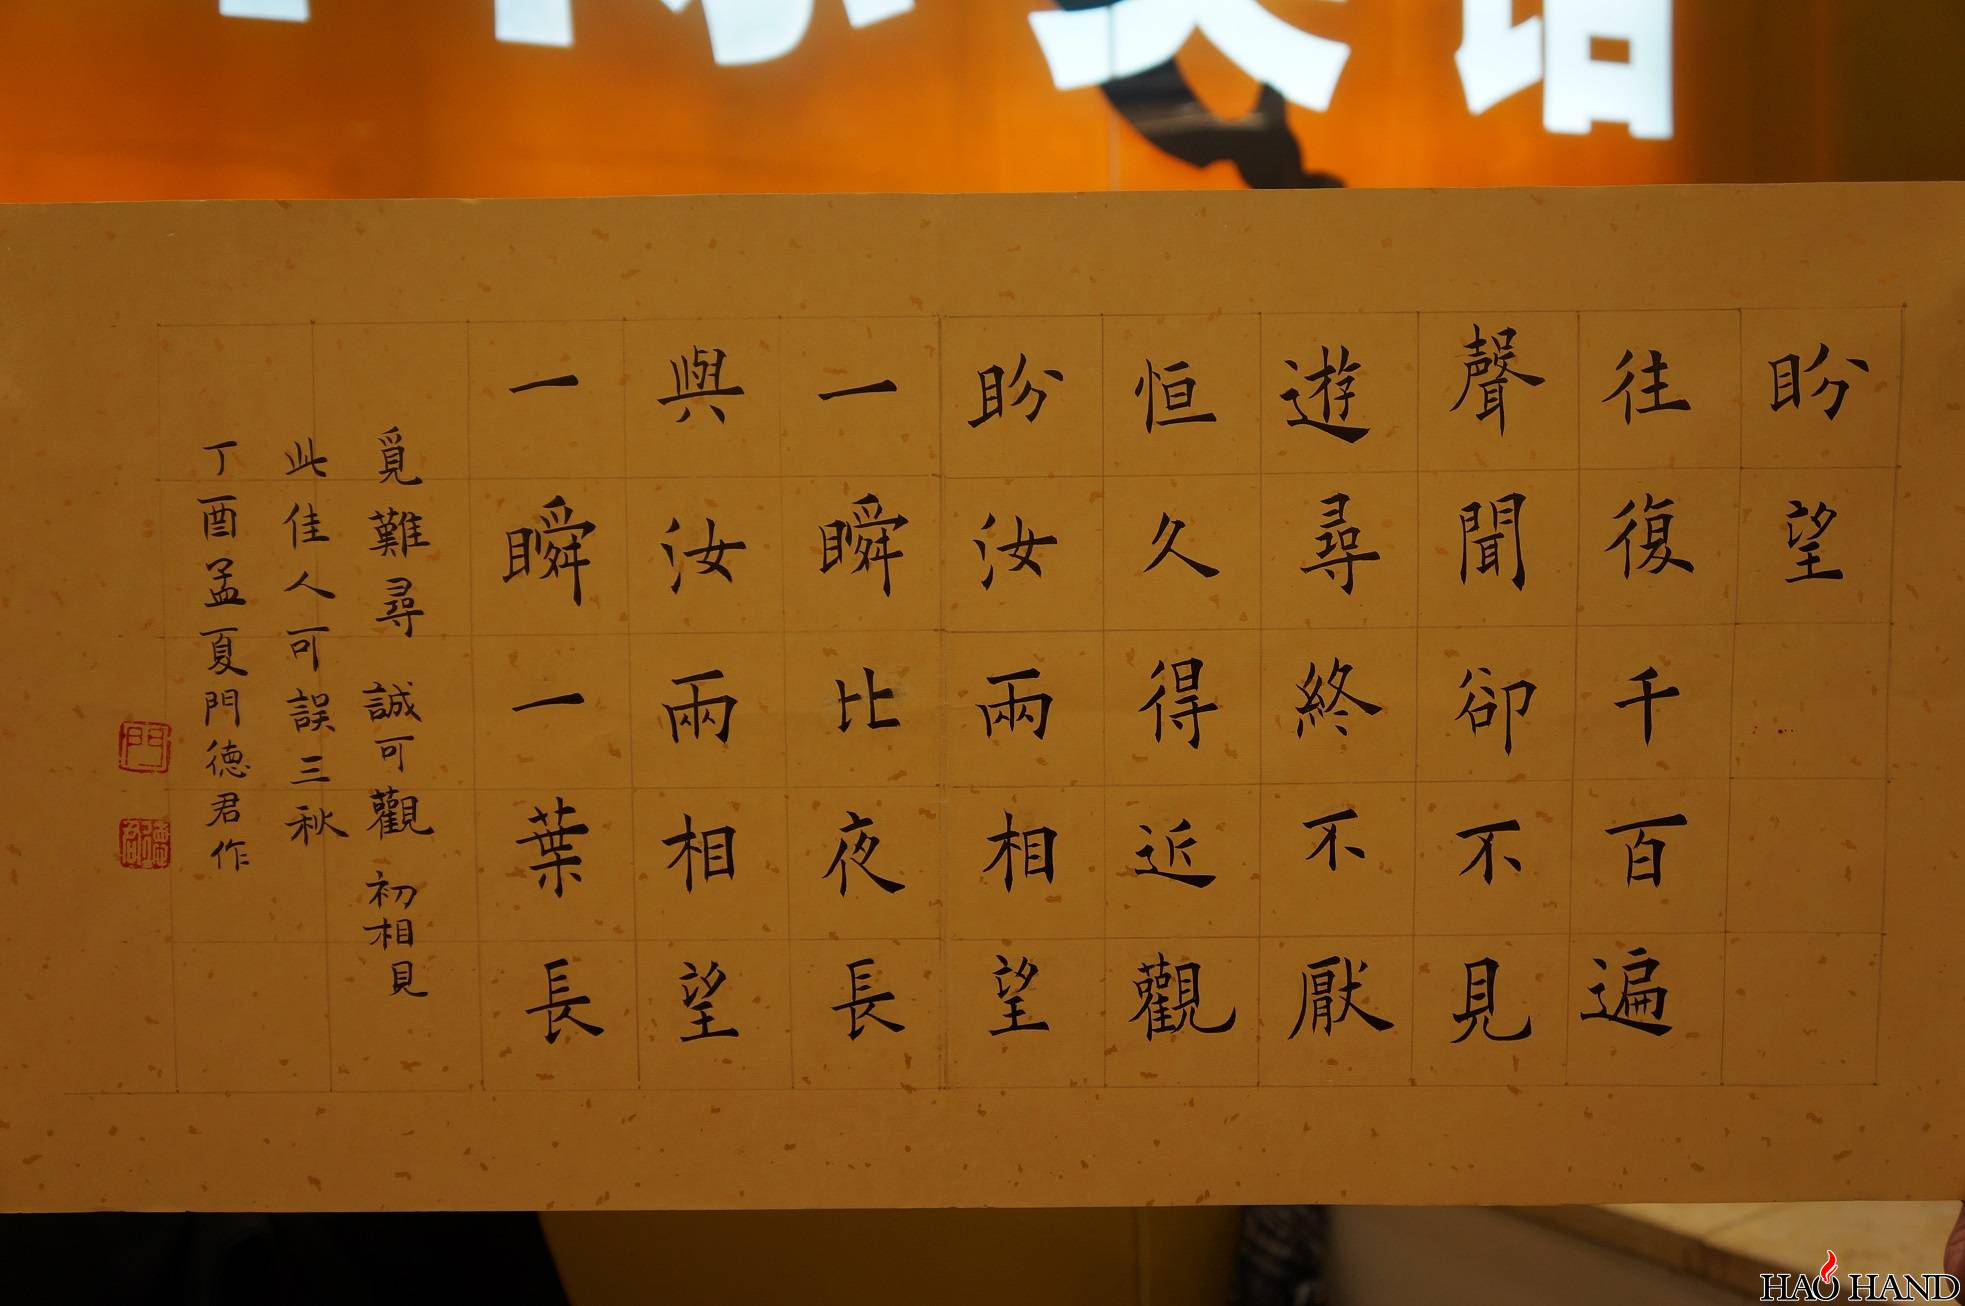 盼望
往復千百遍
聲聞卻不見
遊尋終不厭
恒久得近觀
盼汝兩相望
一瞬比夜長
與汝兩相望
一瞬一葉長
覓難尋 誠可觀 初相見
此佳人可誤三秋
丁酉孟夏門德君作
門
德君
HAO HAND